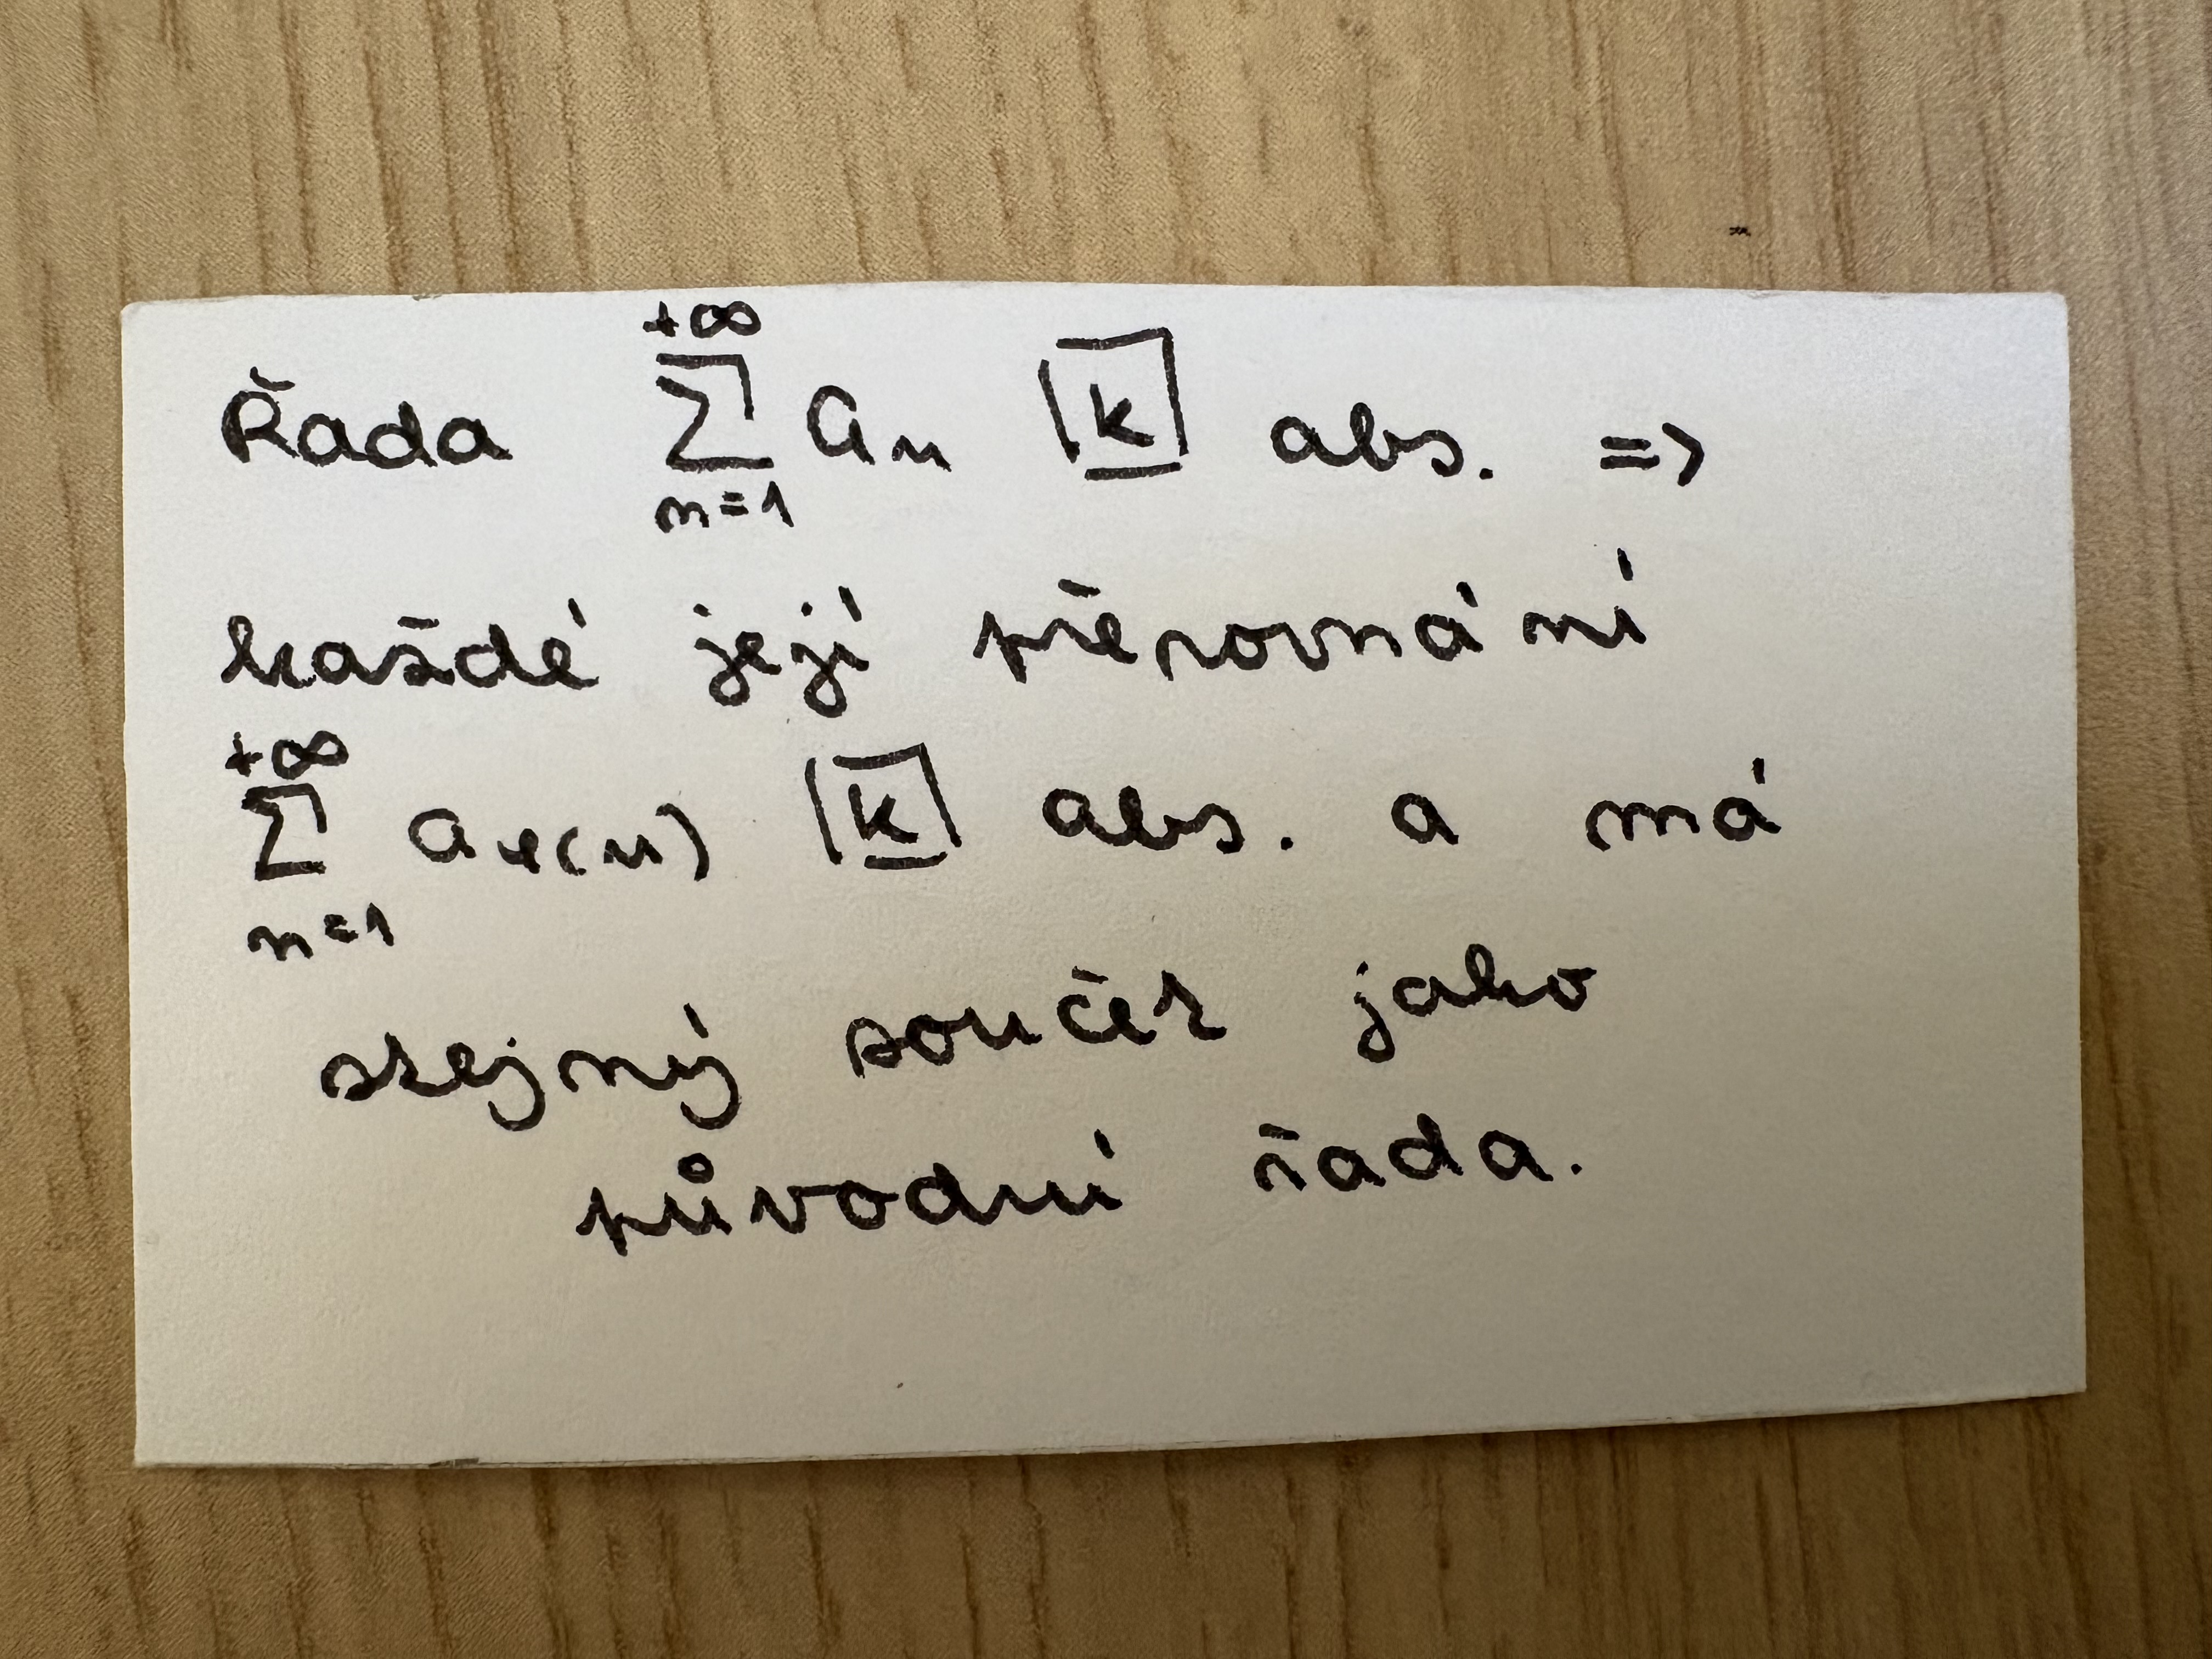 Řada $\sum_{n=1}^{+\infty} a_n$ $\boxed{K}$ abs. =>
každé její přerovnání
$\sum_{n=1}^{+\infty} a_{\varphi(n)}$ $\boxed{K}$ abs. a má
stejný součet jako
původní řada.